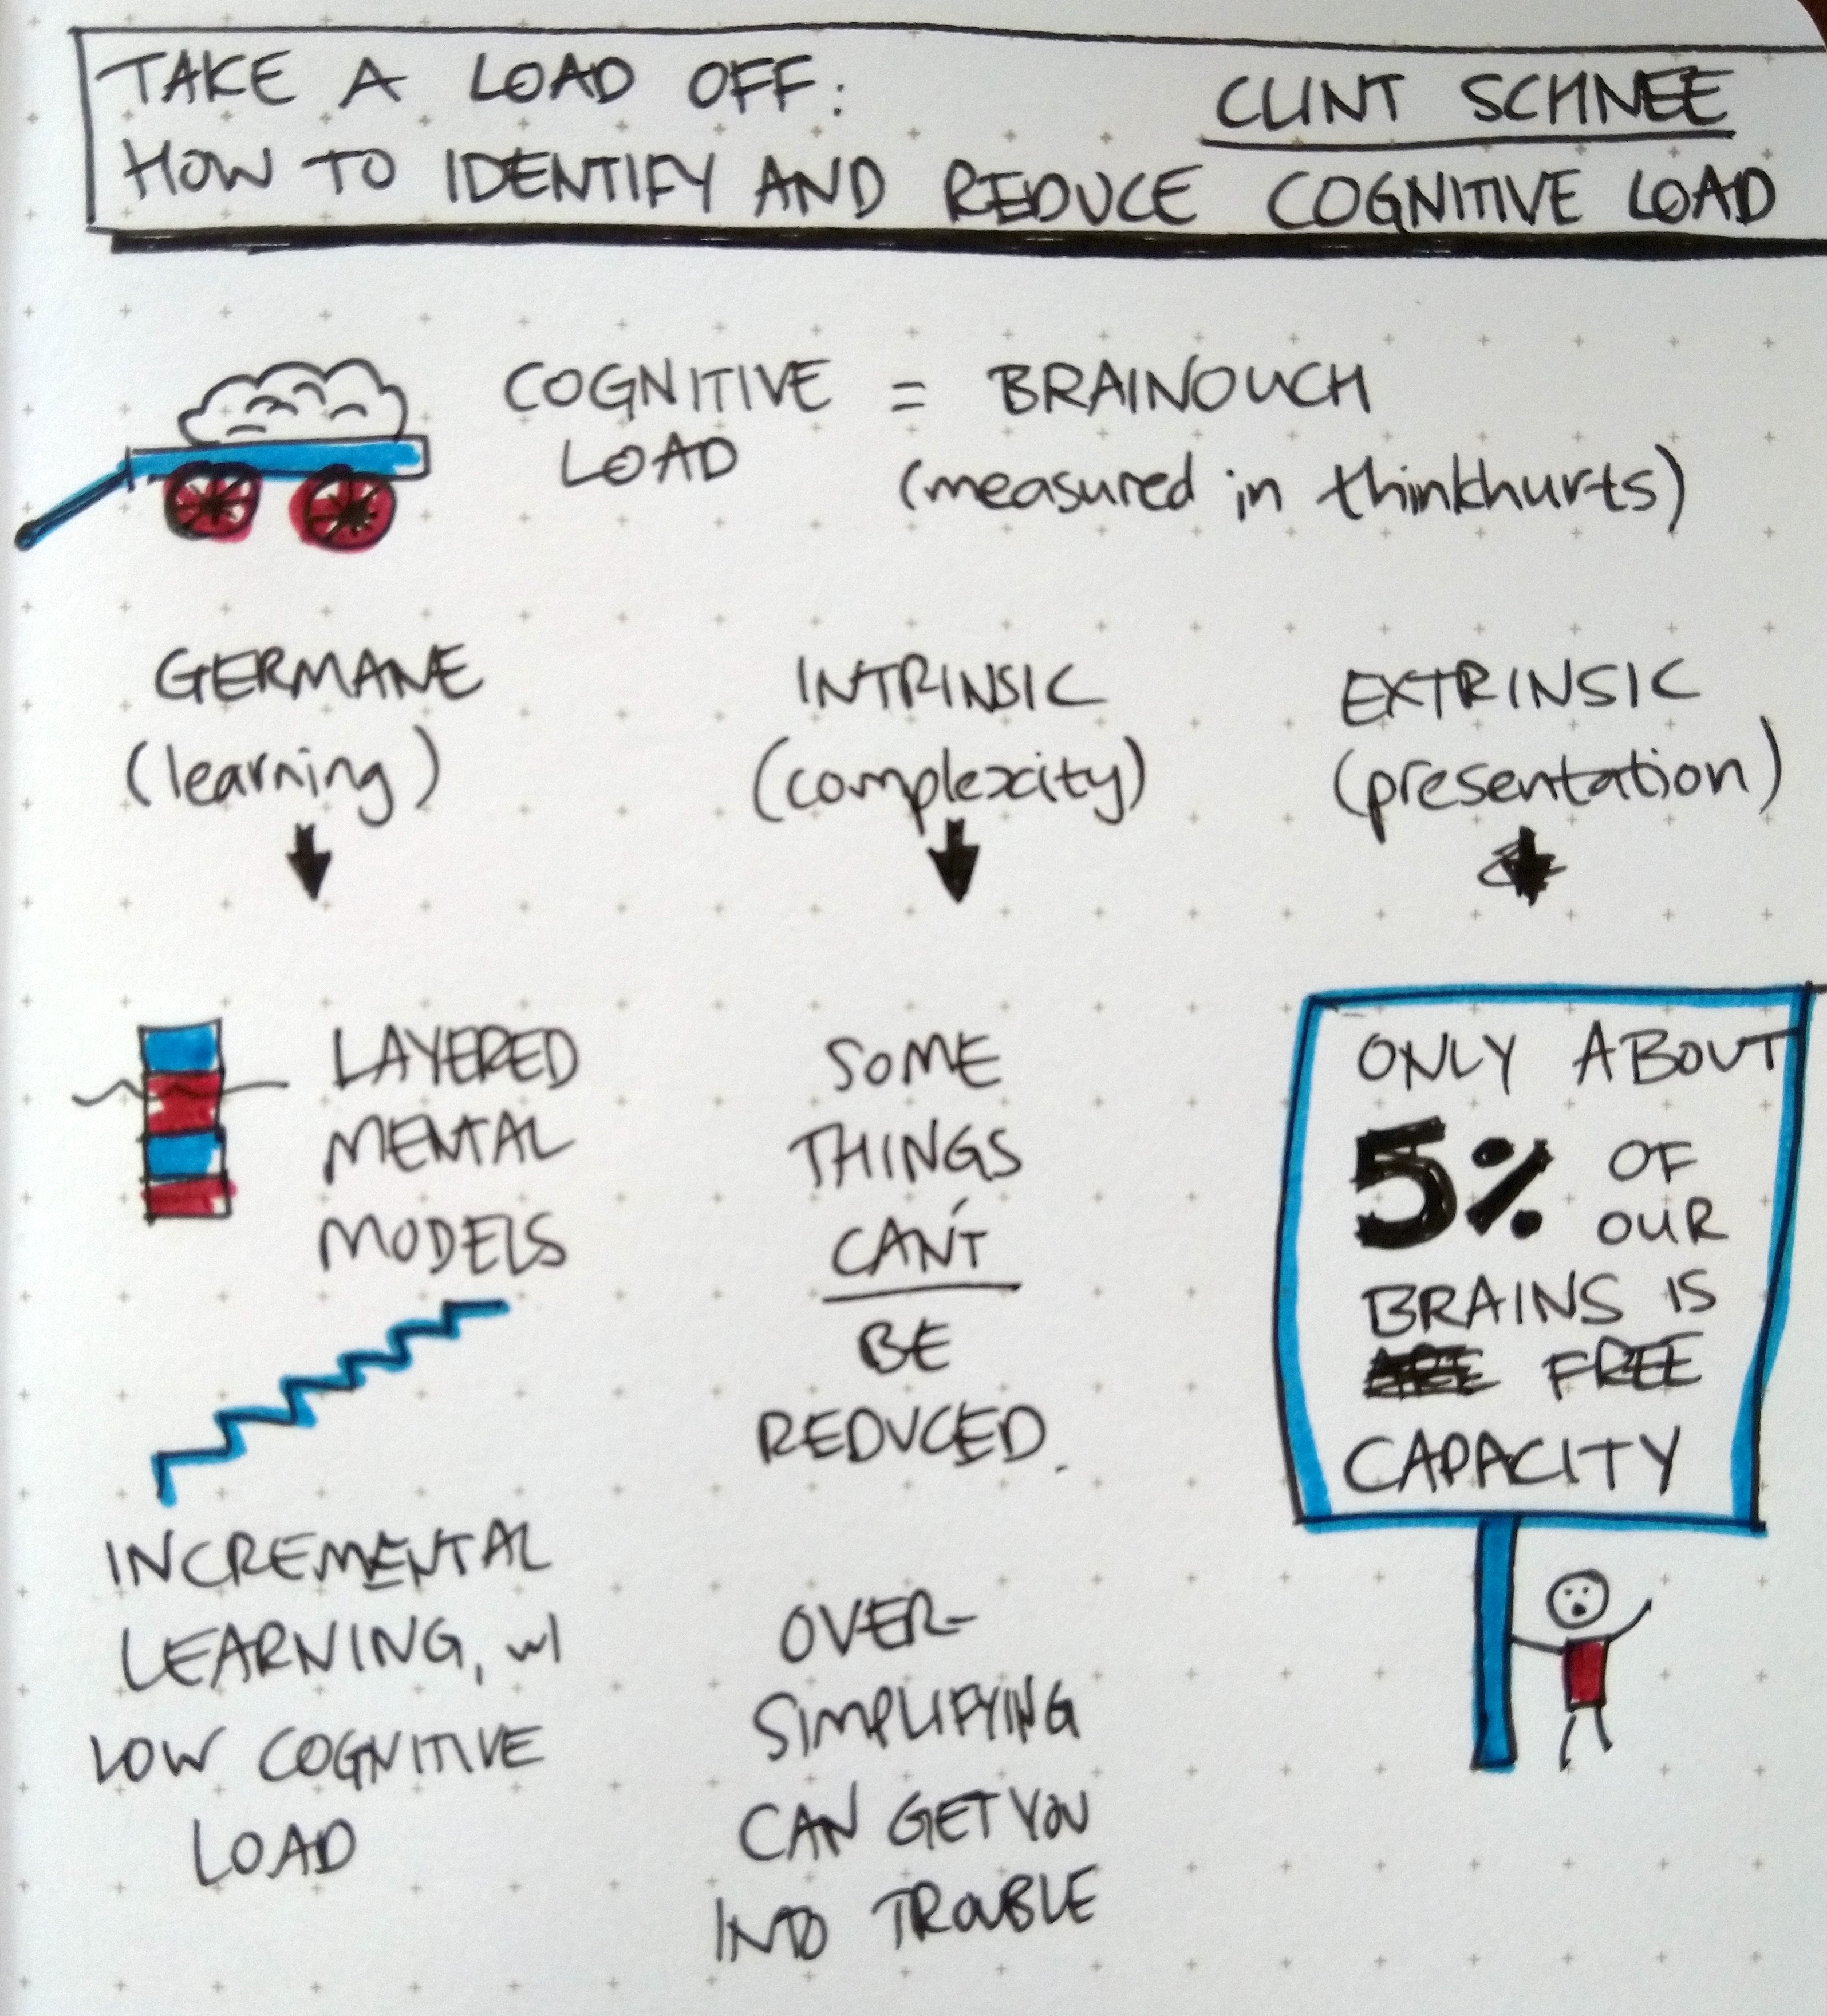 TAKE A LOAD OFF: CLINT SCHNEE
HOW TO IDENTIFY AND REDUCE COGNITIVE LOAD
COGNITIVE = BRAINOUCH
LOAD (measured in thinkhurts)
GERMANE
(learning)
INTRINSIC
(complexity)
EXTRINSIC
(presentation)
LAYERED
MENTAL
MODELS
INCREMENTAL
LEARNING, w/
LOW COGNITIVE
LOAD
SOME
THINGS
CAN'T
BE
REDUCED.
OVER-
SIMPLIFYING
CAN GET YOU
INTO TROUBLE
ONLY ABOUT
5% OF
OUR
BRAINS IS
FREE
CAPACITY